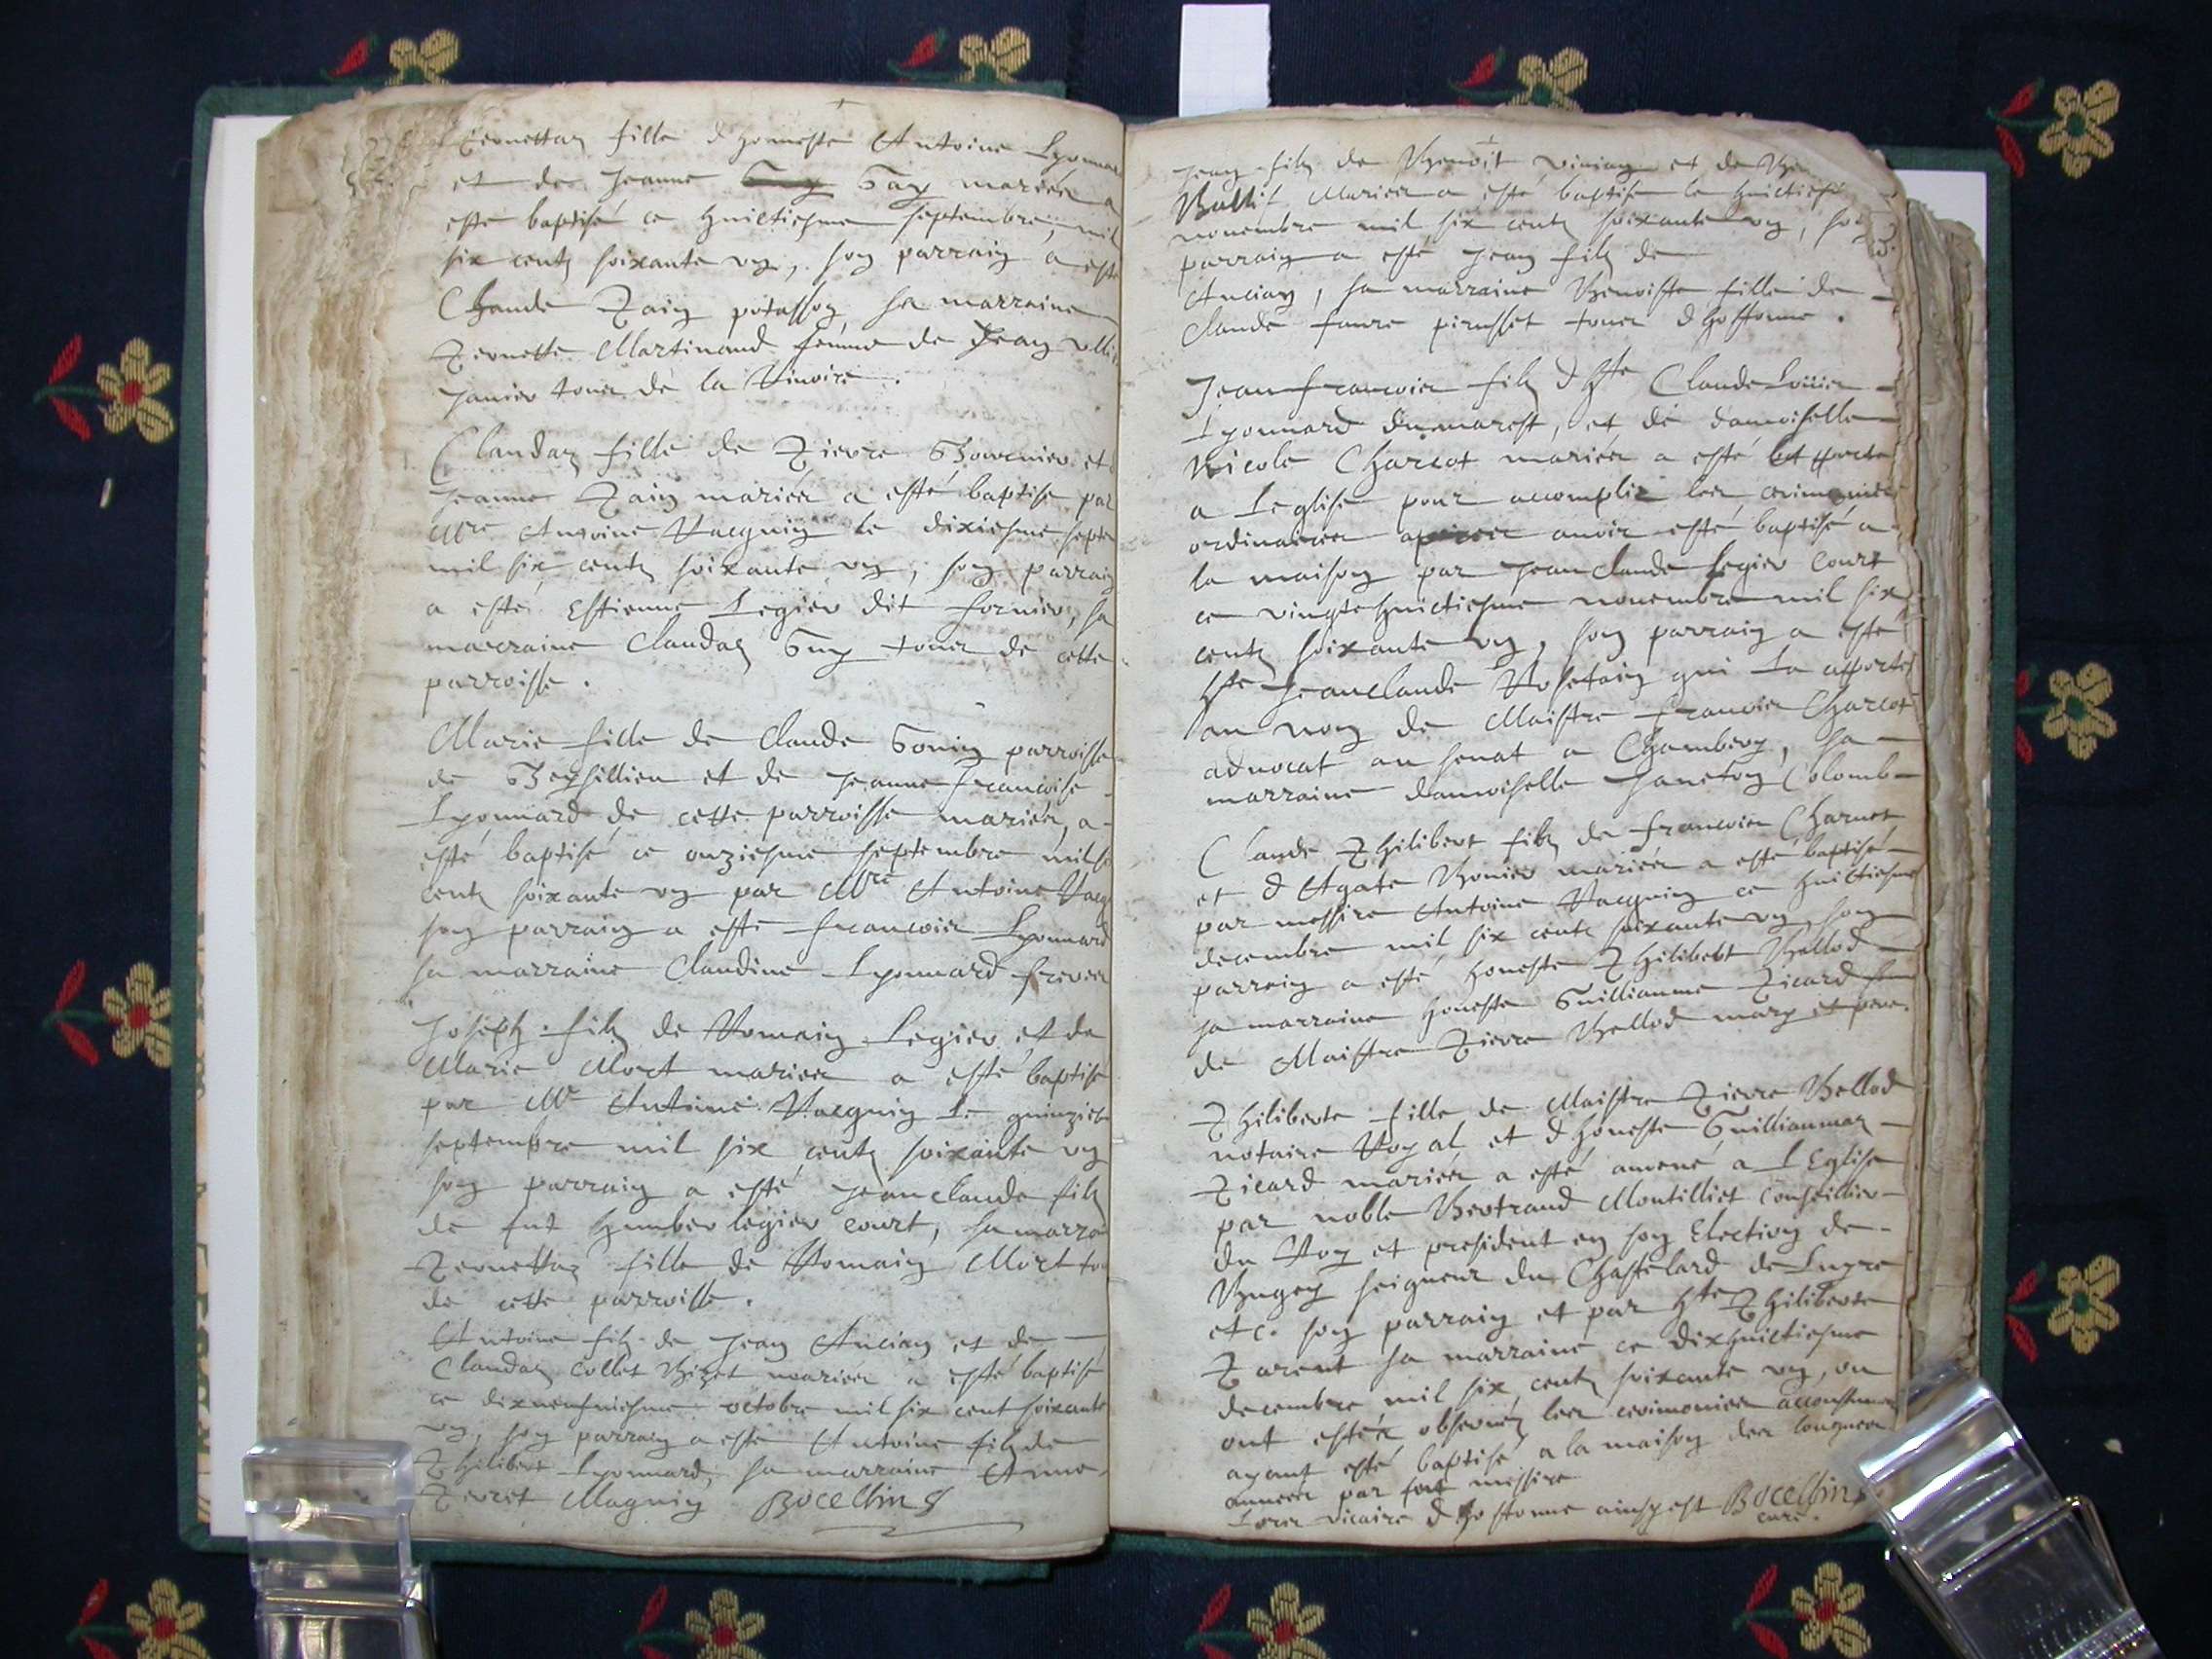 Pernettaz fille d honeste Antoine Lyonnard
et de Jeanne Gay mariés a
esté baptisé ce huictiesme septembre, mil
six centz soixante ung, son parrain a esté
Claude Pain potasson, sa marraine
Pernette Martinand femme de Jean
Janier tous de la
Claudaz fille de Pierre et
Jeanne Pain mariés a esté baptisé par
Mre Antoine Vacquin le dixiesme septe
mil six centz soixante ung, son parrain
a esté Estienne Legier dit fornier, sa
marraine Claudaz Guy tous de cette
parroisse.
Marie fille de Claude Gonin parroisse
de Beysillieu et de Jeanne Francoise
Lyonnard de cette parroisse mariés, a
esté baptisé ce onziesme septembre mil si
centz soixante ung par Mre Antoine Vacq
son parrain a esté Francois Lyonnard
sa marraine Claudine Lyonnard freres
Joseph filz de Romain Legier et de
Marie Mort mariés a esté baptisé
par Mre Antoine Vacquin le quinziesme
septembre mil six centz soixante ung
son parrain a esté Jeanclaude filz
de fut humber legier court, sa marrai
Pernettaz fille de Romain Mort to
de cette parroisse.
Antoine filz de Jean Ancian et de
Claudaz Collet Bizet mariés a esté baptisé
ce dixneufviesme octobre mil six cent soixante
ung, son parrain a esté Antoine filz de
Philibert Lyonnard, sa marraine Anne
Perret Magnin Bocellins
Jean filz de Benoit Vivian et de Ben
Ballif mariés a esté baptisé le huictiesme
novembre mil six centz soixante ung, son
parrain a esté Jean filz de
Ancian, sa marraine Benoiste fille de
Claude favre pirosset tous d hostonne.
Jean francois filz d hte Claude Louis
Lyonnard dumarest, et de damoiselle
Nicole Charcot mariés a esté apporté
a Leglise pour accomplir les cerimonies
ordinaires apres avoir esté baptisé a
la maison par Jeanclaude Legier Court
ce vingtehuictiesme novembre mil six
centz soixante ung, son parrain a esté
hte Jeanclaude Rosetain qui La apporté
au nom de Maistre francois Charcot
advocat au senat a Chambery, sa
marraine damoiselle Janeton Colomb
Claude Philibert filz de francois Charvet
et d Agate Bonier mariés a esté baptisé
par messire Antoine Vacquin ce huictiesme
decembre mil six centz soixante ung, son
parrain a esté honeste Philibert Bellod
sa marraine honeste Guillianme Picard fem
de Maistre Pierre Bellod mary et pere.
Philiberte fille de Maistre Pierre Bellod
notaire Royal et d honeste Guilliaumaz
Picard mariés a esté amené a L Eglise
par noble Bertrand Montilliet Conseillier
du Roy et president en son Election de
Bugey seigneur du Chastelard de Luyre
etc. son parrain et par hte Philiberte
Parent sa marraine ce dixhuictiesme
decembre mil six centz soixante ung, ou
ont estés observés les cerimonies accoustumés
ayant esté baptisé a la maison des longues
années par fort messire
Lores vicaire d hostonne ainsy est Bocellin
curé.